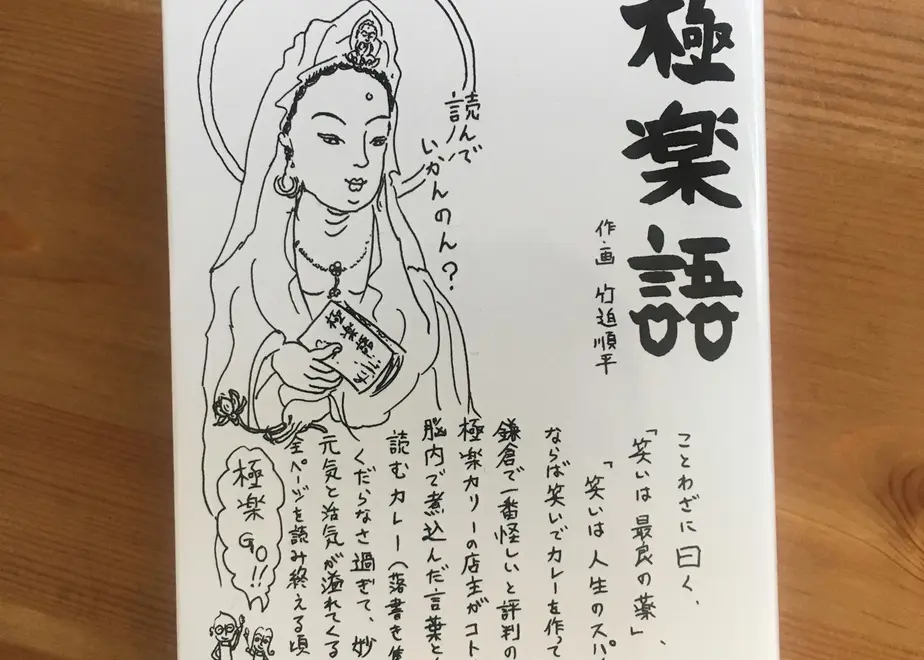 極楽語
作・画 竹迫順平
読んで
いかんのん?
極楽語
ことわざに曰く、
「笑いは最良の薬」、
「笑いは人生のスパイ
ならば笑いでカレーを作って
鎌倉で一番怪しいと評判の
極楽カリーの店主がコト
脳内で煮込んだ言葉と
読むカレー(落書き
くだらなさ過ぎて、妙
元気と活気が溢れてくる
全ページを読み終える頃
極楽
GO!!